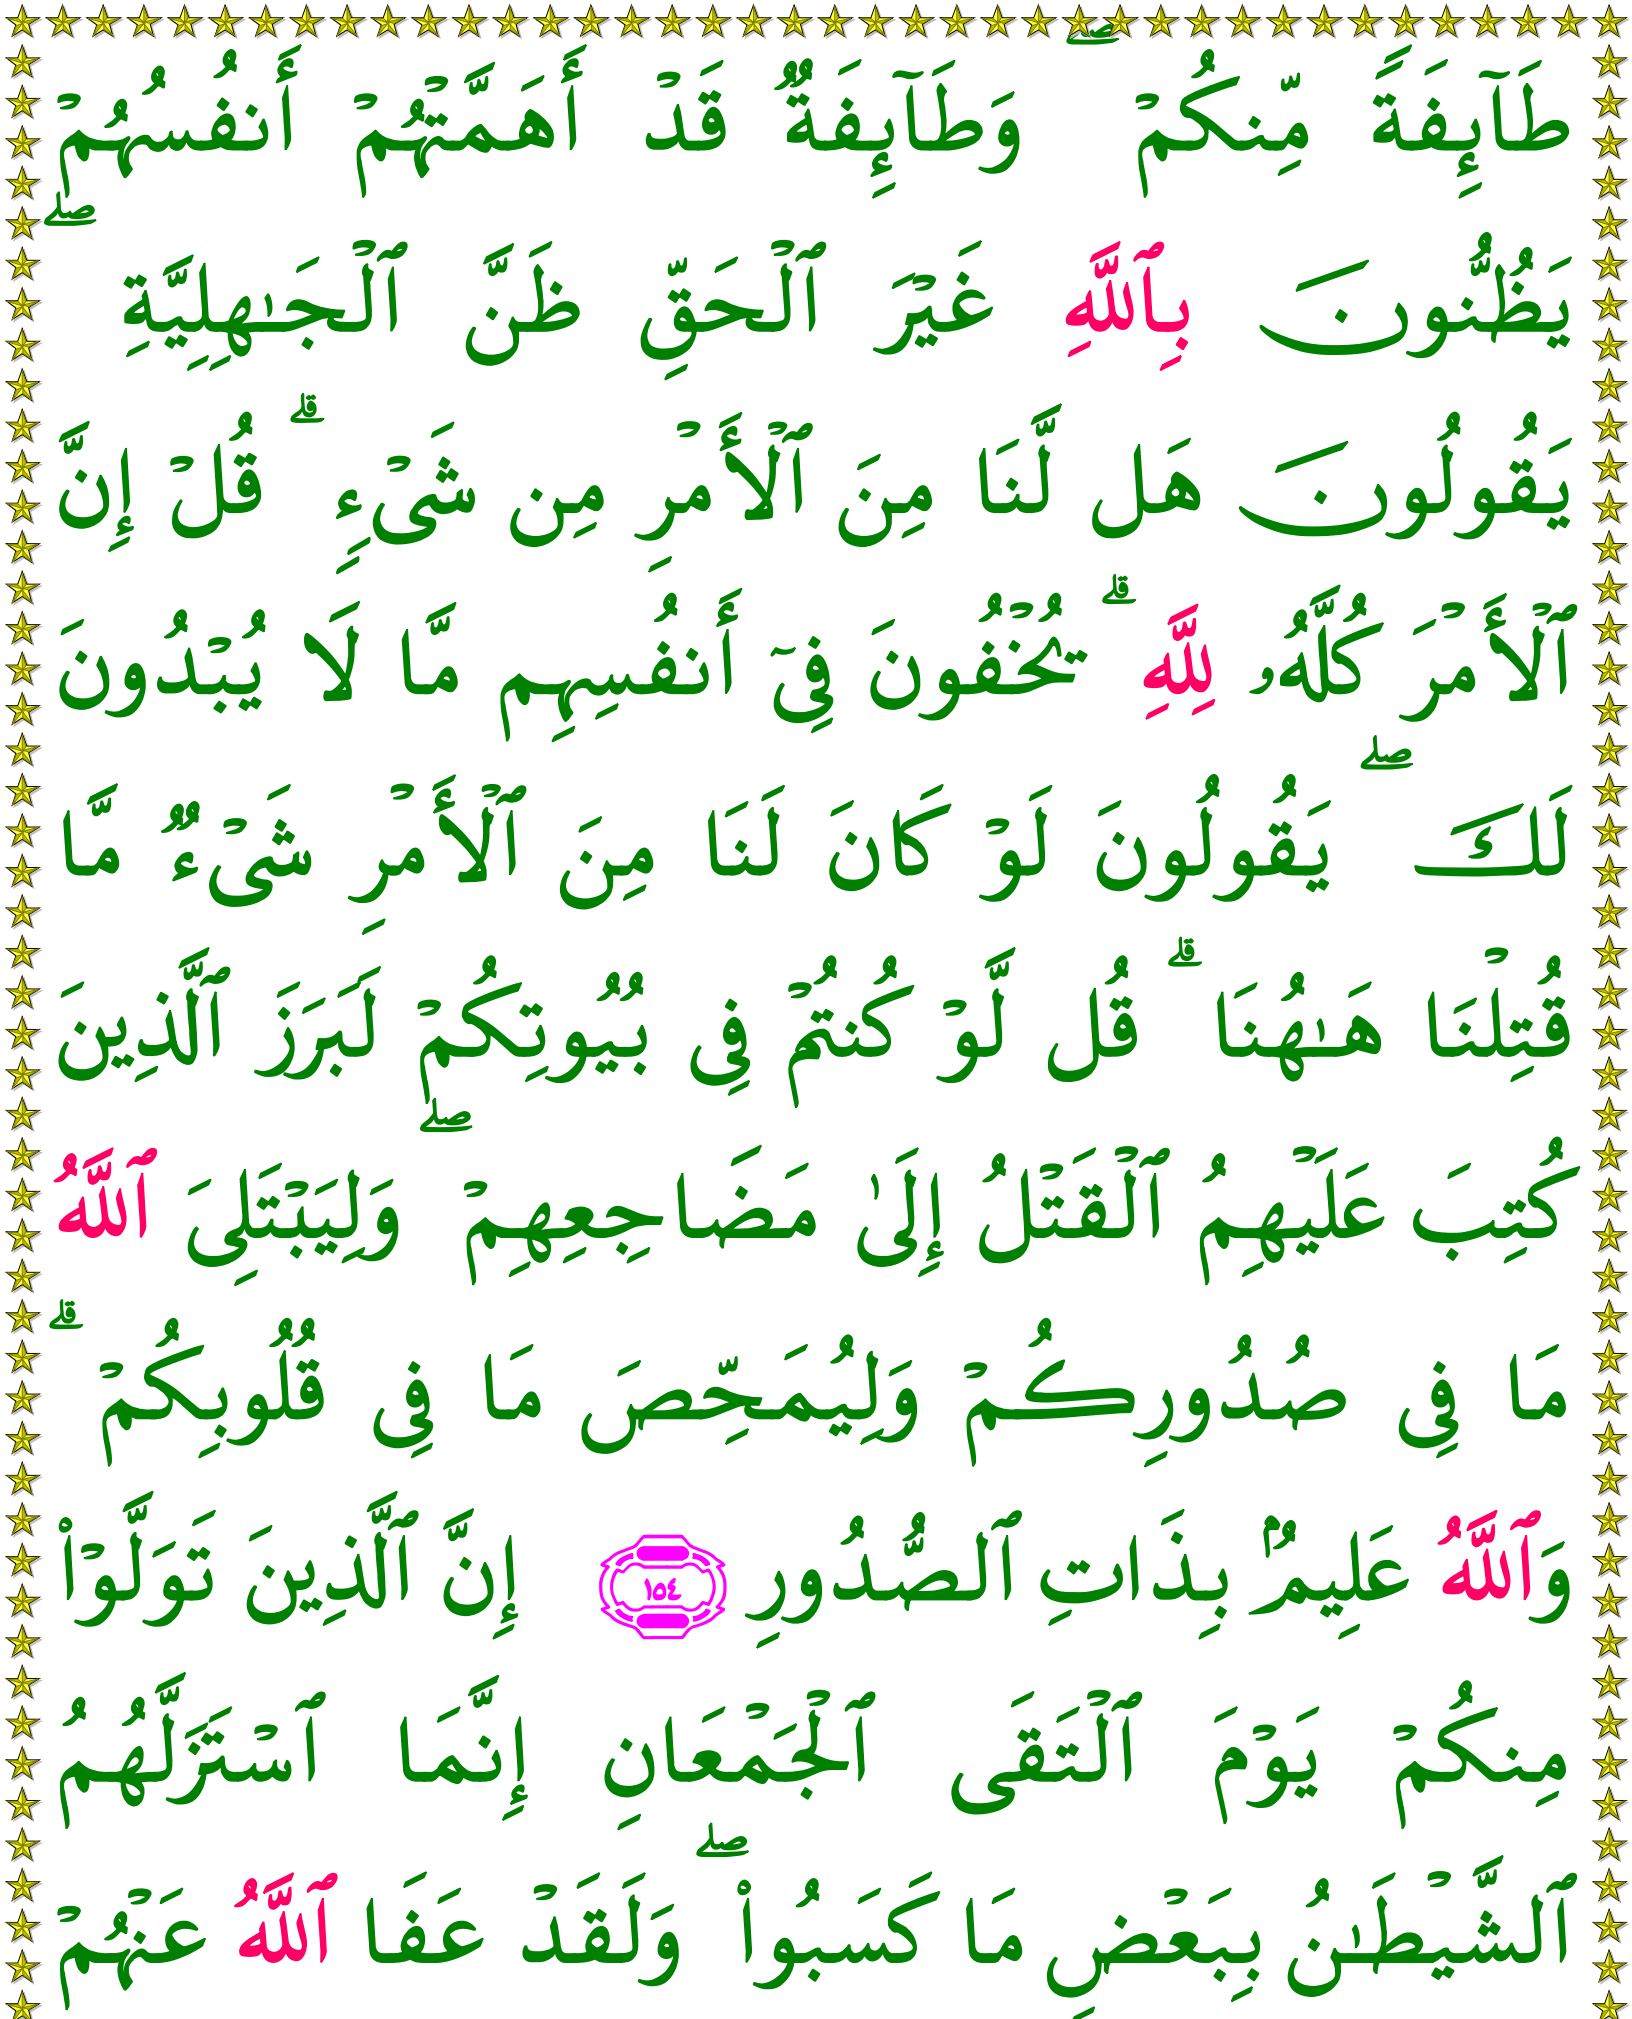 طَآئِفَةً مِّنكُمْ ۖ وَطَآئِفَةٌ قَدْ أَهَمَّتْهُمْ أَنفُسُهُمْ
يَظُنُّونَ بِٱللَّهِ غَيْرَ ٱلْحَقِّ ظَنَّ ٱلْجَـٰهِلِيَّةِ ۖ
يَقُولُونَ هَل لَّنَا مِنَ ٱلْأَمْرِ مِن شَىْءٍ ۗ قُلْ إِنَّ
ٱلْأَمْرَ كُلَّهُۥ لِلَّهِ ۗ يُخْفُونَ فِىٓ أَنفُسِهِم مَّا لَا يُبْدُونَ
لَكَ ۖ يَقُولُونَ لَوْ كَانَ لَنَا مِنَ ٱلْأَمْرِ شَىْءٌ مَّا
قُتِلْنَا هَـٰهُنَا ۗ قُل لَّوْ كُنتُمْ فِى بُيُوتِكُمْ لَبَرَزَ ٱلَّذِينَ
كُتِبَ عَلَيْهِمُ ٱلْقَتْلُ إِلَىٰ مَضَاجِعِهِمْ ۖ وَلِيَبْتَلِىَ ٱللَّهُ
مَا فِى صُدُورِكُمْ وَلِيُمَحِّصَ مَا فِى قُلُوبِكُمْ ۗ
وَٱللَّهُ عَلِيمٌۢ بِذَاتِ ٱلصُّدُورِ ١٥٤ إِنَّ ٱلَّذِينَ تَوَلَّوْا۟
مِنكُمْ يَوْمَ ٱلْتَقَى ٱلْجَمْعَانِ إِنَّمَا ٱسْتَزَلَّهُمُ
ٱلشَّيْطَـٰنُ بِبَعْضِ مَا كَسَبُوا۟ ۖ وَلَقَدْ عَفَا ٱللَّهُ عَنْهُمْ